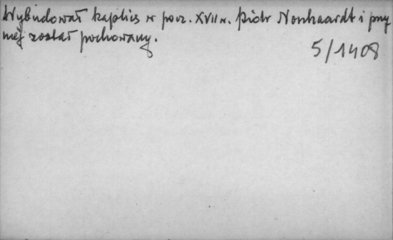 Wybudował kaplicę w pocz. XVII w. Piotr Nonhaardt i przy
niej został pochowany.
5/1408